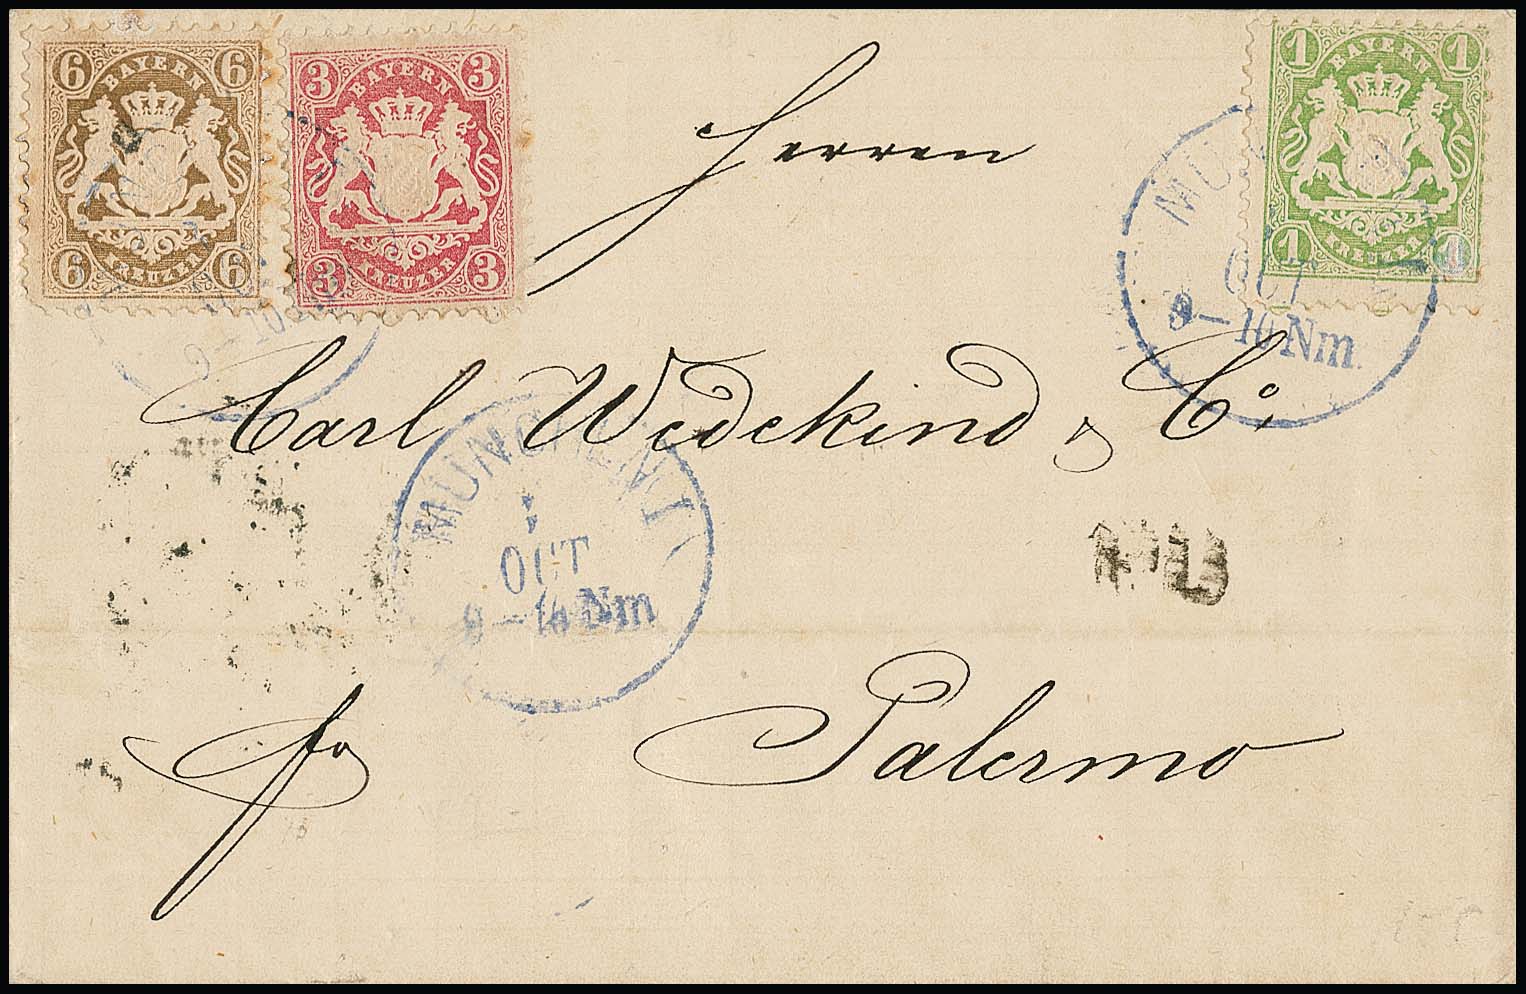 6 6
BAYERN
KREUZER
6 6
3 3
BAYERN
KREUZER
3 3
1 1
BAYERN
KREUZER
1 1
OCT
9-10 Nm.
Herren
Carl Wedekind & Co.
MUNCHEN I
OCT
9-10 Nm
fro
Palermo